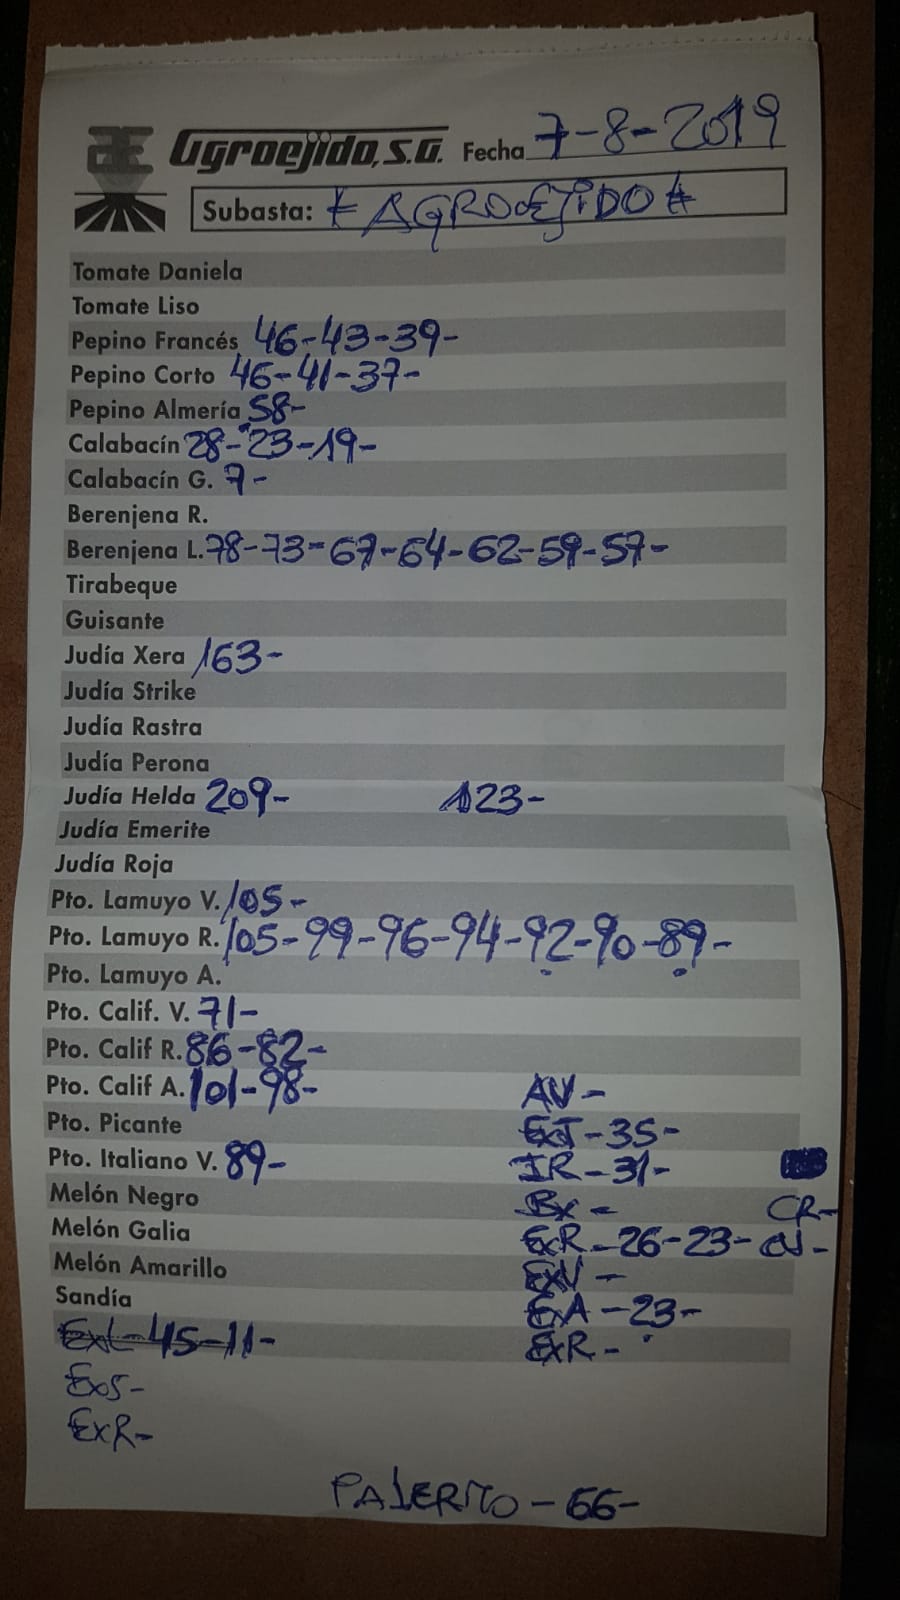 Agroejido, S.A. Fecha 7-8-2019
Subasta: * AGROEJIDO *
Tomate Daniela
Tomate Liso
Pepino Francés 46-43-39-
Pepino Corto 46-41-37-
Pepino Almería 58-
Calabacín 28-23-19-
Calabacín G. 7-
Berenjena R.
Berenjena L. 78-73-67-64-62-59-57-
Tirabeque
Guisante
Judía Xera 163-
Judía Strike
Judía Rastra
Judía Perona
Judía Helda 209- 123-
Judía Emerite
Judía Roja
Pto. Lamuyo V. 105-
Pto. Lamuyo R. 105-99-96-94-92-90-89-
Pto. Lamuyo A.
Pto. Calif. V. 71-
Pto. Calif R. 86-82-
Pto. Calif A. 101-98- AV-
Pto. Picante ExT-35-
Pto. Italiano V. 89- IR-31-
Melón Negro Bx- CR-
Melón Galia ExR-26-23- CV-
Melón Amarillo ExV-
Sandía ExA-23-
ExL-45-11- ExR-
ExS-
ExR-
PALERMO-66-